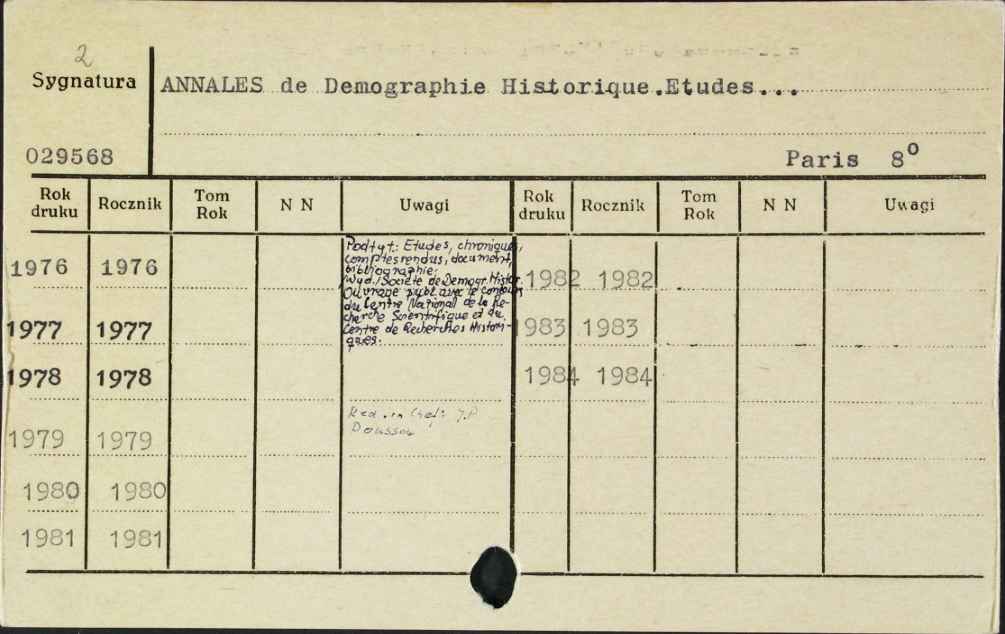 2
Sygnatura
ANNALES de Demographie Historique.Etudes...
029568
Paris 8º
Rok druku Rocznik Tom Rok N N Uwagi Rok druku Rocznik Tom Rok N N Uwagi
1976 1976
Podtyt.: Etudes, chronique,
comptes rendus, document,
bibliographie;
Wyd./Société de Demogr. Histor.
Ouvrage publ. avec le concours
du Centre National de la Re-
cherche Scientifique et du
Centre de Recherches Histori-
ques.
1982 1982
1977 1977
983 1983
1978 1978
1984 1984
Red. in Chef: J.P
1979 1979
1980 1980
1981 1981